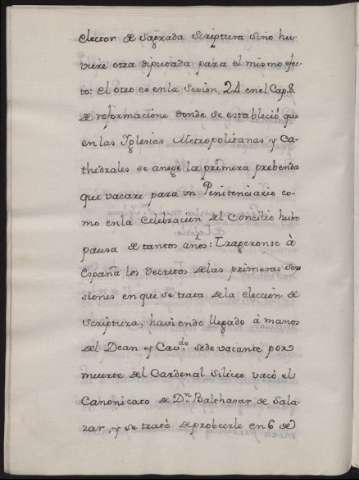 elector de sagrada scriptura sino hu-
viere otra diputada para el mismo efec-
to: el otro es en la sesion, 24 en el Cap. 8
de reformacione donde se estableció que
en las Yglesias Metropolitanas y Ca-
thedrales se aneje la primera prebenda
que vacare para un Penitenciario co-
mo en la Celebracion del Concilio hubo
pausa de tantos anos: Trageronse à
España los Decretos de las primeras Ses-
siones en que se trata de la eleccion de
Scriptura, haviendo llegado à manos
del Dean y Cavdo. sede vacante por
muerte del Cardenal Siliceo vacó el
Canonicato de Dn. Balthasar de Sala-
zar, y se trató de probeerle en 6 de